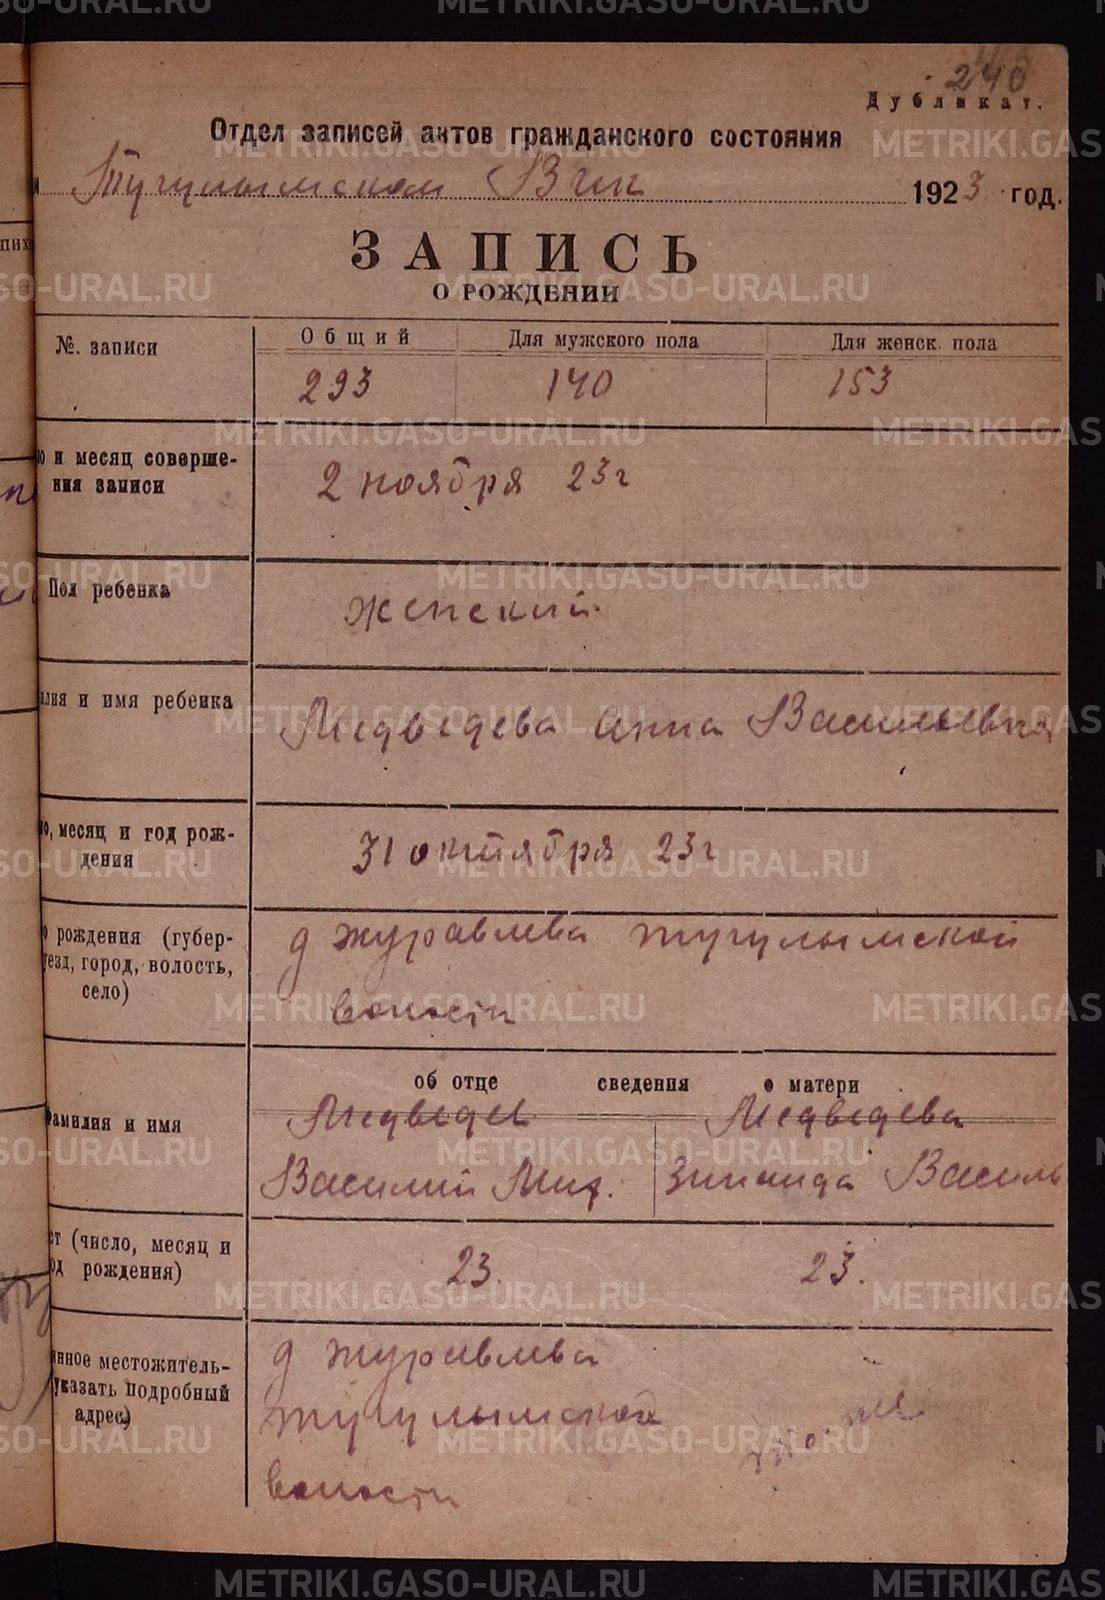 240
Дубликат.
Отдел записей актов гражданского состояния
и Тугулымском Вик 1923 год.
ЗАПИСЬ
О РОЖДЕНИИ
№. записи
Общий Для мужского пола Для женск. пола
293 140 153
ло и месяц соверше-
ния записи
2 ноября 23 г
Пол ребенка
женский
илия и имя ребенка
Медведева Анна Васильевна
ло, месяц и год рож-
дения
31 октября 23 г
о рождения (губер-
уезд, город, волость,
село)
д Журавлева Тугулымской
волости
об отце сведения о матери
Фамилия и имя
Медведев Медведева
Василий Мих. Зинаида Василь
ст (число, месяц и
од рождения)
23. 23.
янное местожитель-
указать подробный
адрес)
д Журавлева
Тугулымской
волости
METRIKI.GASO-URAL.RU